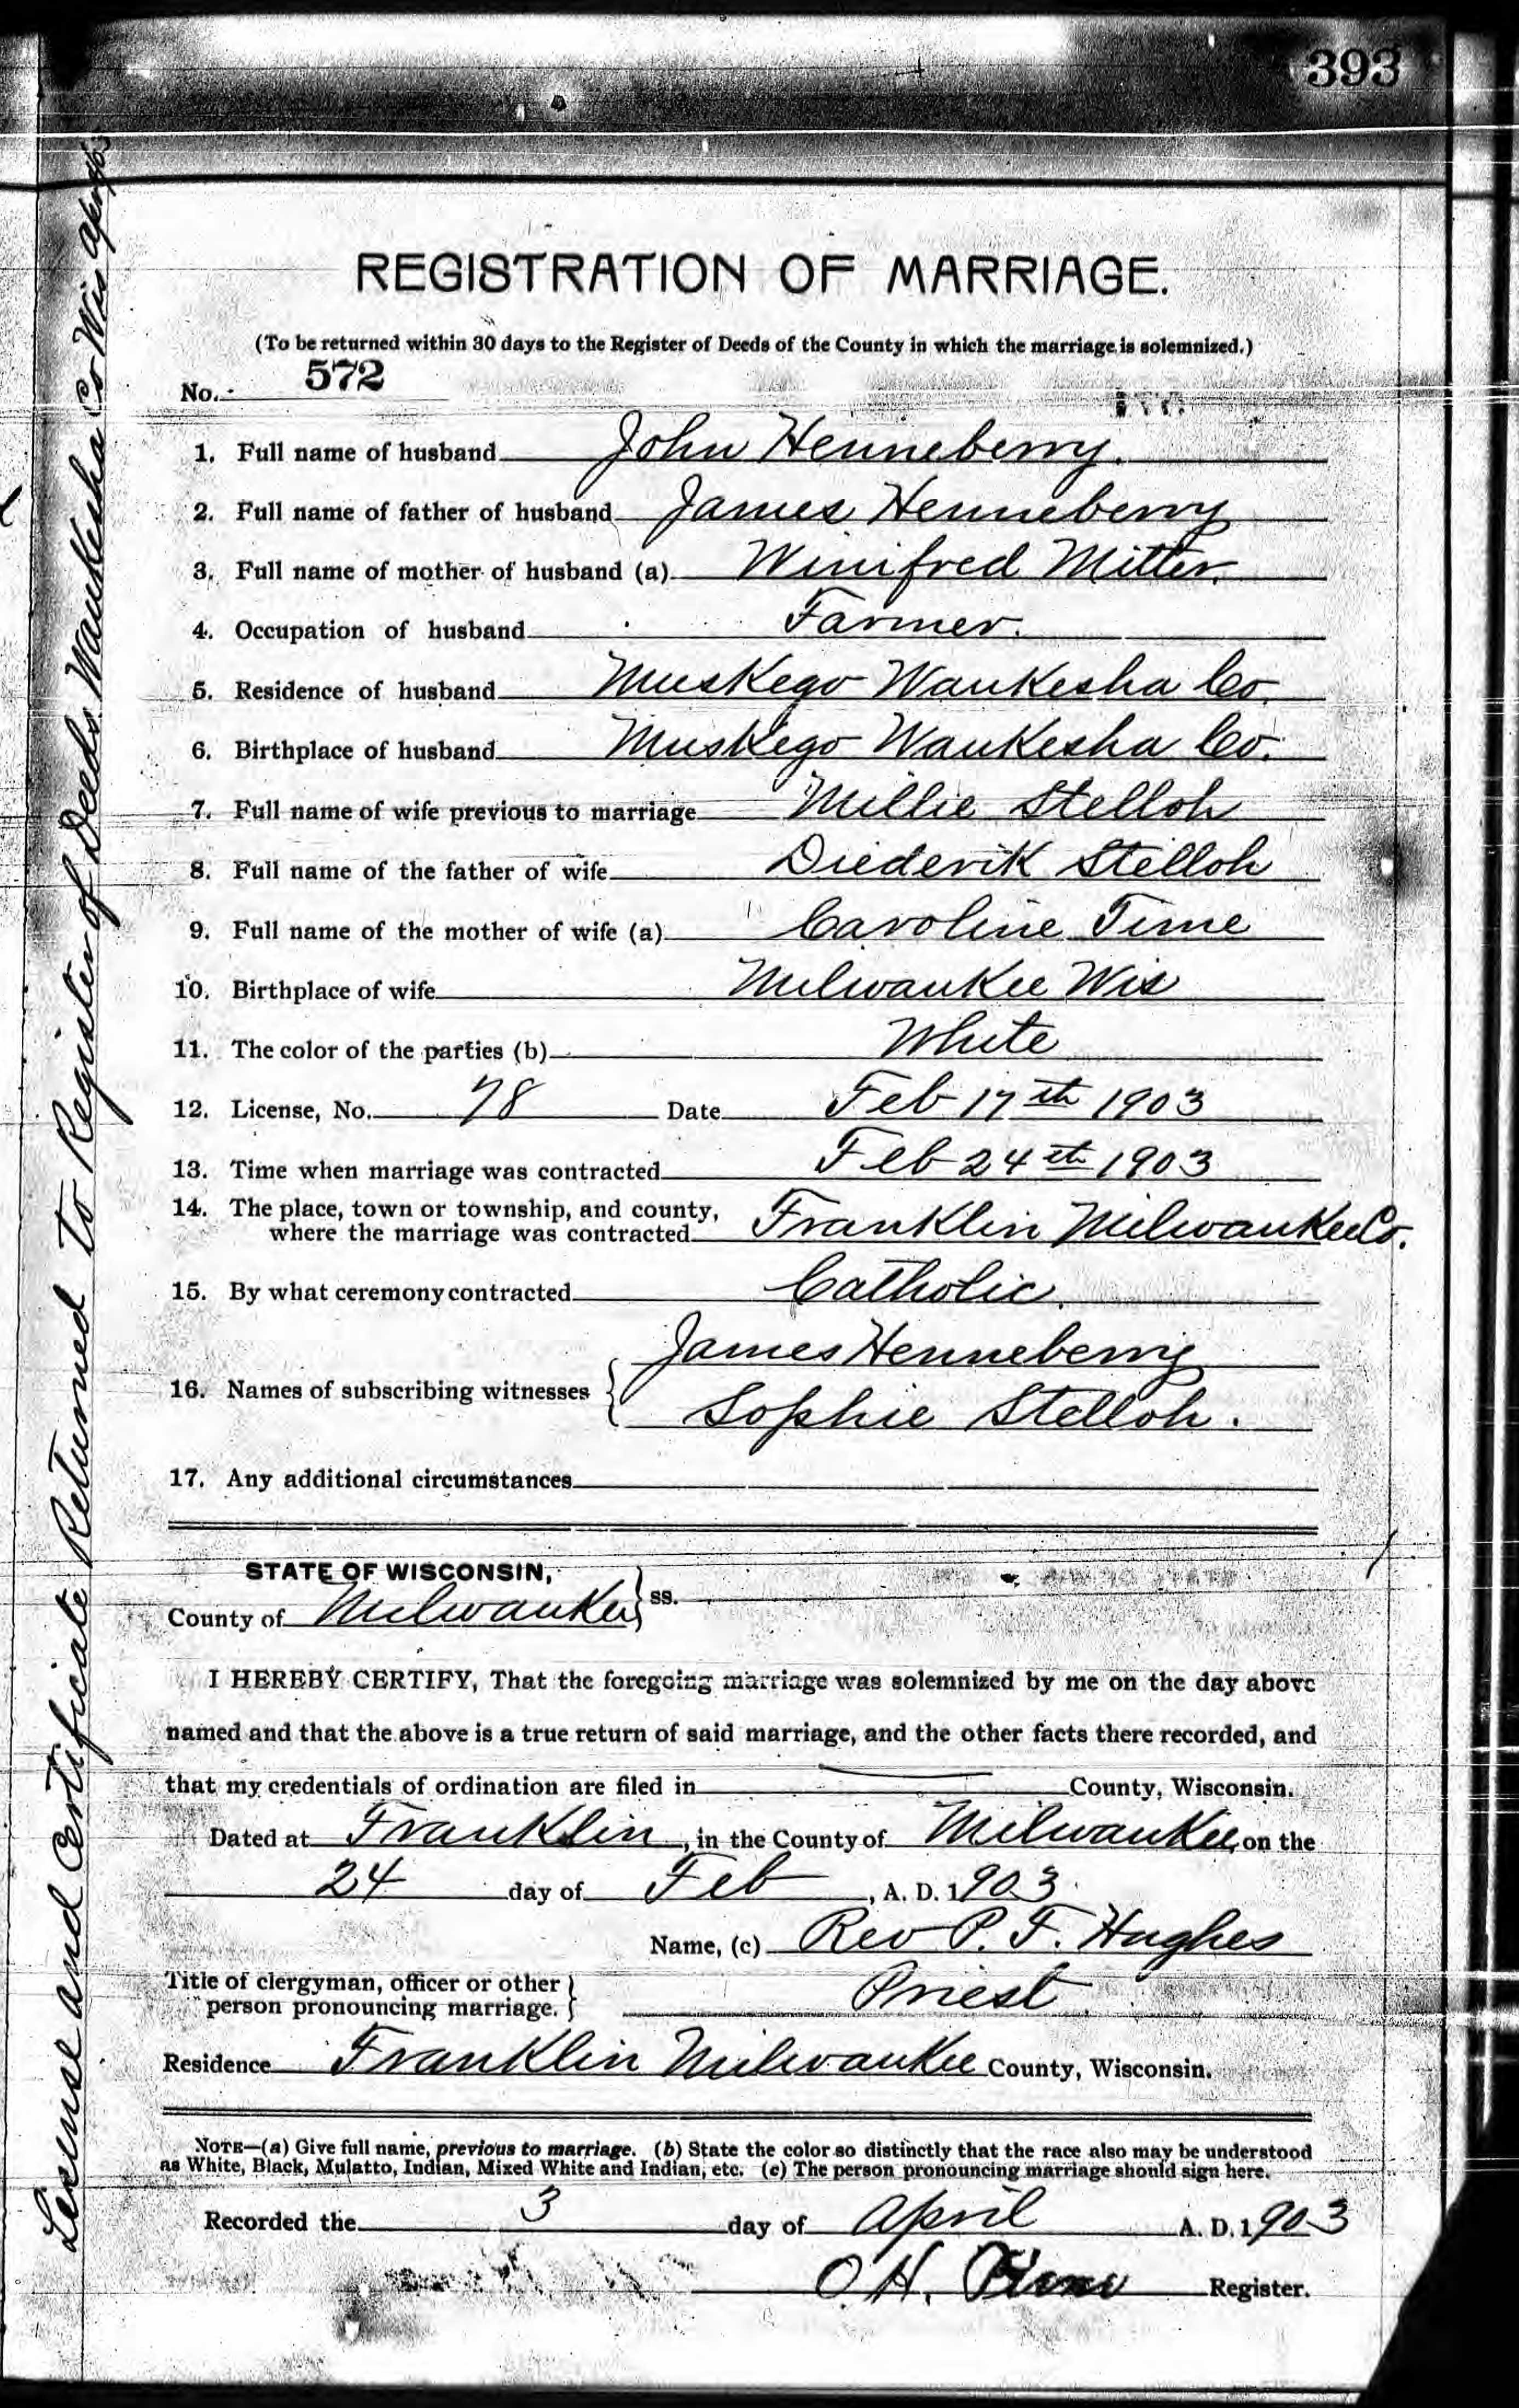 393
REGISTRATION OF MARRIAGE.
(To be returned within 30 days to the Register of Deeds of the County in which the marriage is solemnized.)
No. 572
1. Full name of husband John Henneberry.
2. Full name of father of husband James Henneberry
3. Full name of mother of husband (a) Winifred Mitter
4. Occupation of husband Farmer.
5. Residence of husband Muskego Waukesha Co.
6. Birthplace of husband Muskego Waukesha Co.
7. Full name of wife previous to marriage Millie Stelloh
8. Full name of the father of wife Diederik Stelloh
9. Full name of the mother of wife (a) Caroline Time
10. Birthplace of wife Milwaukee Wis
11. The color of the parties (b) White
12. License, No. 78 Date Feb 17th 1903
13. Time when marriage was contracted Feb 24th 1903
14. The place, town or township, and county,
where the marriage was contracted Franklin Milwaukee Co.
15. By what ceremony contracted Catholic.
James Henneberry
16. Names of subscribing witnesses
Sophie Stelloh.
17. Any additional circumstances
STATE OF WISCONSIN,
County of Milwaukee ss.
I HEREBY CERTIFY, That the foregoing marriage was solemnized by me on the day above
named and that the above is a true return of said marriage, and the other facts there recorded, and
that my credentials of ordination are filed in County, Wisconsin.
Dated at Franklin, in the County of Milwaukee, on the
24 day of Feb, A. D. 1903
Name, (c) Rev P. F. Hughes
Title of clergyman, officer or other
person pronouncing marriage. Priest
Residence Franklin Milwaukee County, Wisconsin.
NOTE—(a) Give full name, previous to marriage. (b) State the color so distinctly that the race also may be understood
as White, Black, Mulatto, Indian, Mixed White and Indian, etc. (c) The person pronouncing marriage should sign here.
Recorded the 3 day of April A. D. 1903
O. H. Register.
License and Certificate Returned to Register of Deeds Waukesha Co Wis